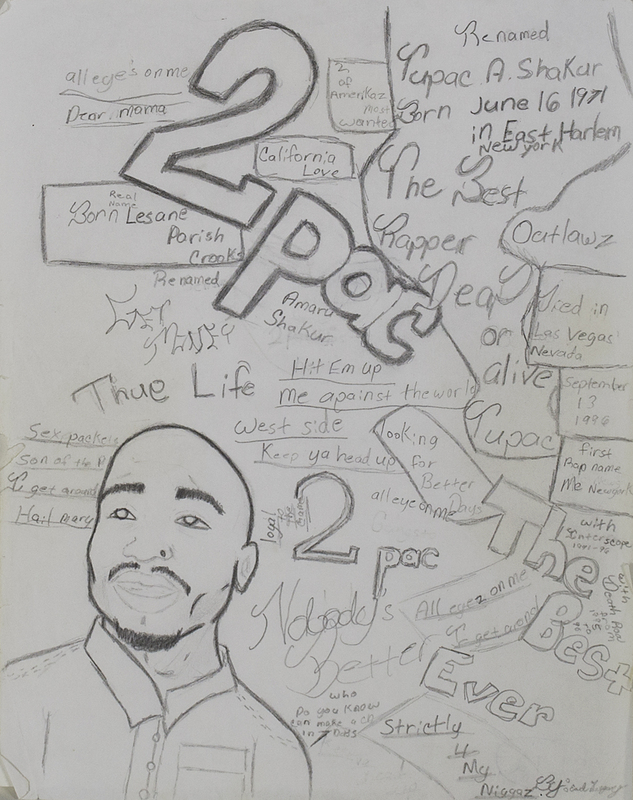 Renamed
Tupac A. Shakur
Born June 16 1971
in East Harlem
New York
The Best
Rapper
Dead
or
alive
Tupac
alleye's on me
Dear mama
2
of
Amerikaz
most
wanted
2
Pac
California
Love
Real
Name
Born Lesane
Parish
Crooks
Renamed
Amaru
Shakur
Outlawz
Died in
Las Vegas
Nevada
September
13
1996
first
Rap name
Me Newyork
Get
Money
Thue Life
Hit Em up
me against the world
west side
Keep ya head up
looking
for
Better
Days
alleyeonme
Sex packets
Son of the P
I get around
Hail mary
loyal
to
the
2
pac
The
Best
Ever
with
Interscope
with
Death Row
Nobody's
Better
All eyez on me
I get around
who
Do you know
can make a cd
in 7 Days
Strictly
4
My
Niggaz
By